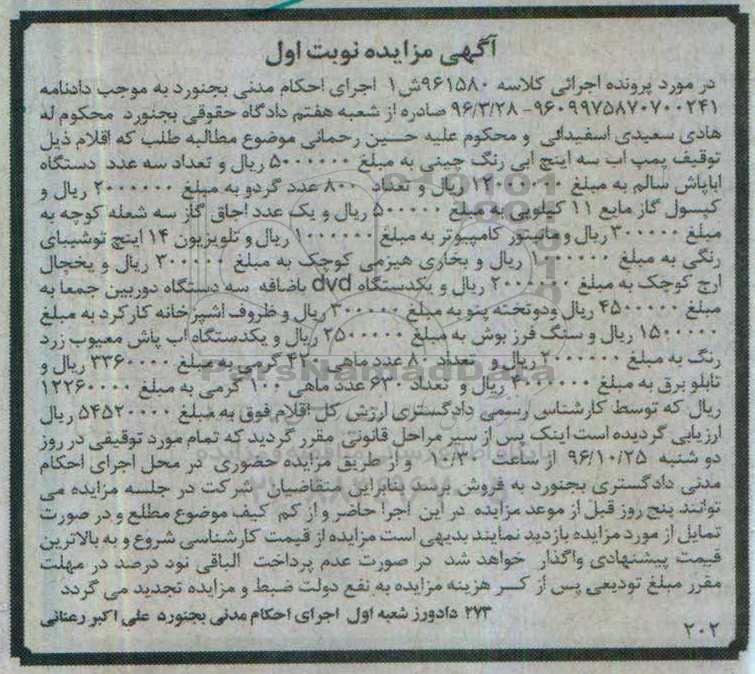 آگهی مزایده نوبت اول
در مورد پرونده اجرائی کلاسه ۹۶۱۵۸۰ش۱ اجرای احکام مدنی بجنورد به موجب دادنامه
۹۶۰۹۹۷۵۸۷۰۷۰۰۲۴۱-۹۶/۳/۲۸ صادره از شعبه هفتم دادگاه حقوقی بجنورد محکوم له
هادی سعیدی اسفیدانی و محکوم علیه حسین رحمانی موضوع مطالبه طلب که اقلام ذیل
توقیف پمپ اب سه اینچ ابی رنگ چینی به مبلغ ۵۰۰۰۰۰۰ ریال و تعداد سه عدد دستگاه
اباپاش سالم به مبلغ ۱۲۰۰۰۰۰۰ ریال و تعداد ۸۰۰ عدد گردو به مبلغ ۲۰۰۰۰۰۰ ریال و
کپسول گاز مایع ۱۱ کیلویی به مبلغ ۵۰۰۰۰۰ ریال و یک عدد اجاق گاز سه شعله کوچه به
مبلغ ۳۰۰۰۰۰ ریال و مانیتور کامپیوتر به مبلغ ۱۰۰۰۰۰۰ ریال و تلویزیون ۱۴ اینچ توشیبای
رنگی به مبلغ ۱۰۰۰۰۰۰ ریال و بخاری هیزمی کوچک به مبلغ ۳۰۰۰۰۰ ریال و یخچال
ارج کوچک به مبلغ ۲۰۰۰۰۰۰ ریال و یکدستگاه dvd باضافه سه دستگاه دوربین جمعا به
مبلغ ۴۵۰۰۰۰۰ ریال ودوتخته پتو به مبلغ ۳۰۰۰۰۰ ریال و ظروف اشپزخانه کارکرد به مبلغ
۱۵۰۰۰۰۰ ریال و سنگ فرز بوش به مبلغ ۲۵۰۰۰۰۰ ریال و یکدستگاه اب پاش معیوب زرد
رنگ به مبلغ ۲۰۰۰۰۰۰ ریال و تعداد ۸۰ عدد ماهی ۴۲۰ گرمی به مبلغ ۳۳۶۰۰۰۰ ریال و
تابلو برق به مبلغ ۴۰۰۰۰۰۰ ریال و تعداد ۶۳۰ عدد ماهی ۱۰۰ گرمی به مبلغ ۱۲۲۶۰۰۰۰
ریال که توسط کارشناس رسمی دادگستری ارزش کل اقلام فوق به مبلغ ۵۴۵۲۰۰۰۰ ریال
ارزیابی گردیده است اینک پس از سیر مراحل قانونی مقرر گردید که تمام مورد توقیفی در روز
دو شنبه ۹۶/۱۰/۲۵ از ساعت ۱۰/۳۰ و از طریق مزایده حضوری در محل اجرای احکام
مدنی دادگستری بجنورد به فروش برسد بنابراین متقاضیان شرکت در جلسه مزایده می
توانند پنج روز قبل از موعد مزایده در این اجرا حاضر و از کم کیف موضوع مطلع و در صورت
تمایل از مورد مزایده بازدید نمایند بدیهی است مزایده از قیمت کارشناسی شروع و به بالاترین
قیمت پیشنهادی واگذار خواهد شد در صورت عدم پرداخت الباقی نود درصد در مهلت
مقرر مبلغ تودیعی پس از کسر هزینه مزایده به نفع دولت ضبط و مزایده تجدید می گردد
۲۷۳ دادورز شعبه اول اجرای احکام مدنی بجنورد علی اکبر رعنائی
۲۰۲
ParsNamadData